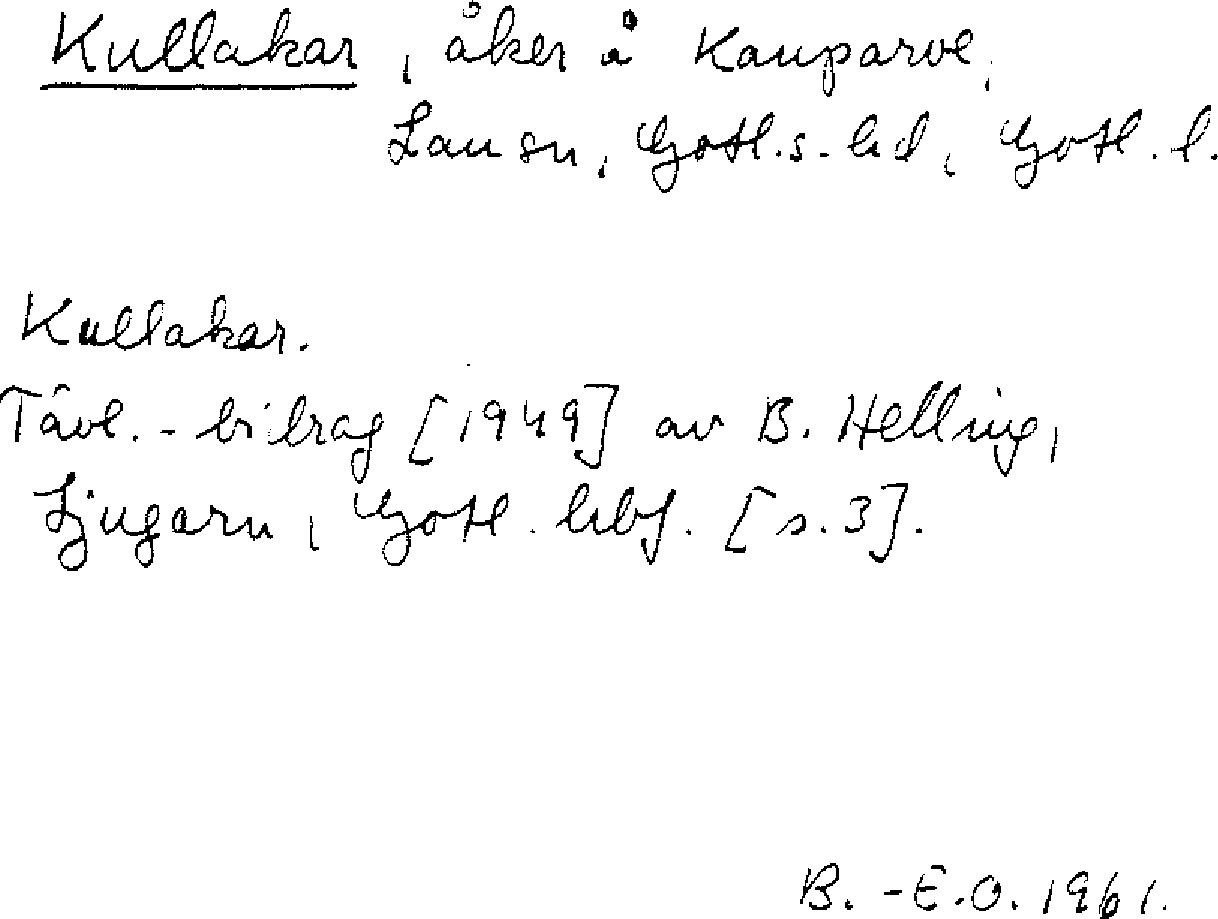 Kullakar, åker å Kauparve,
Lau sn, Gotl. s. hd, Gotl. l.
Kullakar.
Tävl.-bidrag [1949] av B. Helling,
Ljugarn, Gotl. hbf. [s. 3].
B.-E.O. 1961.